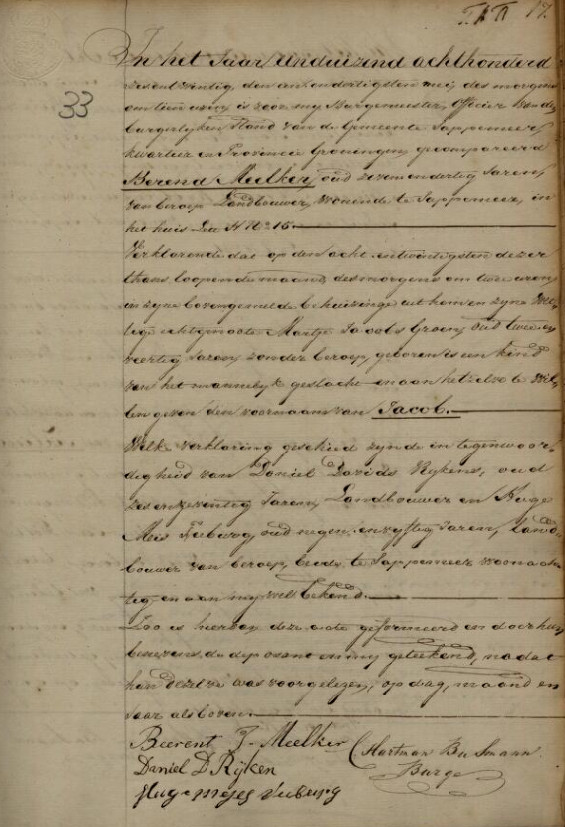 17.
33
In het Jaar Eenduizend achthonderd
zesentwintig, den een en dertigsten mei, des morgens
om tien uren, is voor my Burgemeester, Officier van den
burgerlyken stand van de Gemeente Sappemeer,
kwartier en Provincie Groningen, gecompareerd
Berend Meelker, oud zeven en dertig Jaren,
van beroep Landbouwer, wonende te Sappemeer, in
het huis Lett H No 15.
Verklarende dat op den acht en twintigsten dezer
thans loopende maand, des morgens om twee uren,
in zyne bovengemelde behuizinge uit hem en zyne Wet-
tige echtgenoote Martje Jacobs Groen, oud twee en
veertig Jaren, zonder beroep, geboren is een kind
van het mannelyk geslacht en aan hetzelve te wil-
len geven den voornaam van Jacob.
Welke verklaring geschied zynde in tegenwoor-
digheid van Daniel Davids Rykens, oud
zes en zeventig Jaren, Landbouwer en Huge
Meis Tuburg, oud negen en vyftig Jaren, Land-
bouwer van beroep, beide te Sappemeer woonach-
tig en aan my wel bekend.
Zoo is hiervan deze acte geformeerd en door hun
benevens de deposent en my geteekend, na dat
hun dezelve was voorgelezen, op dag, maand en
jaar als boven.
Beerent J. Meelker
Hartman Busmann
Daniel D Ryken
Burge
Huge Mejes